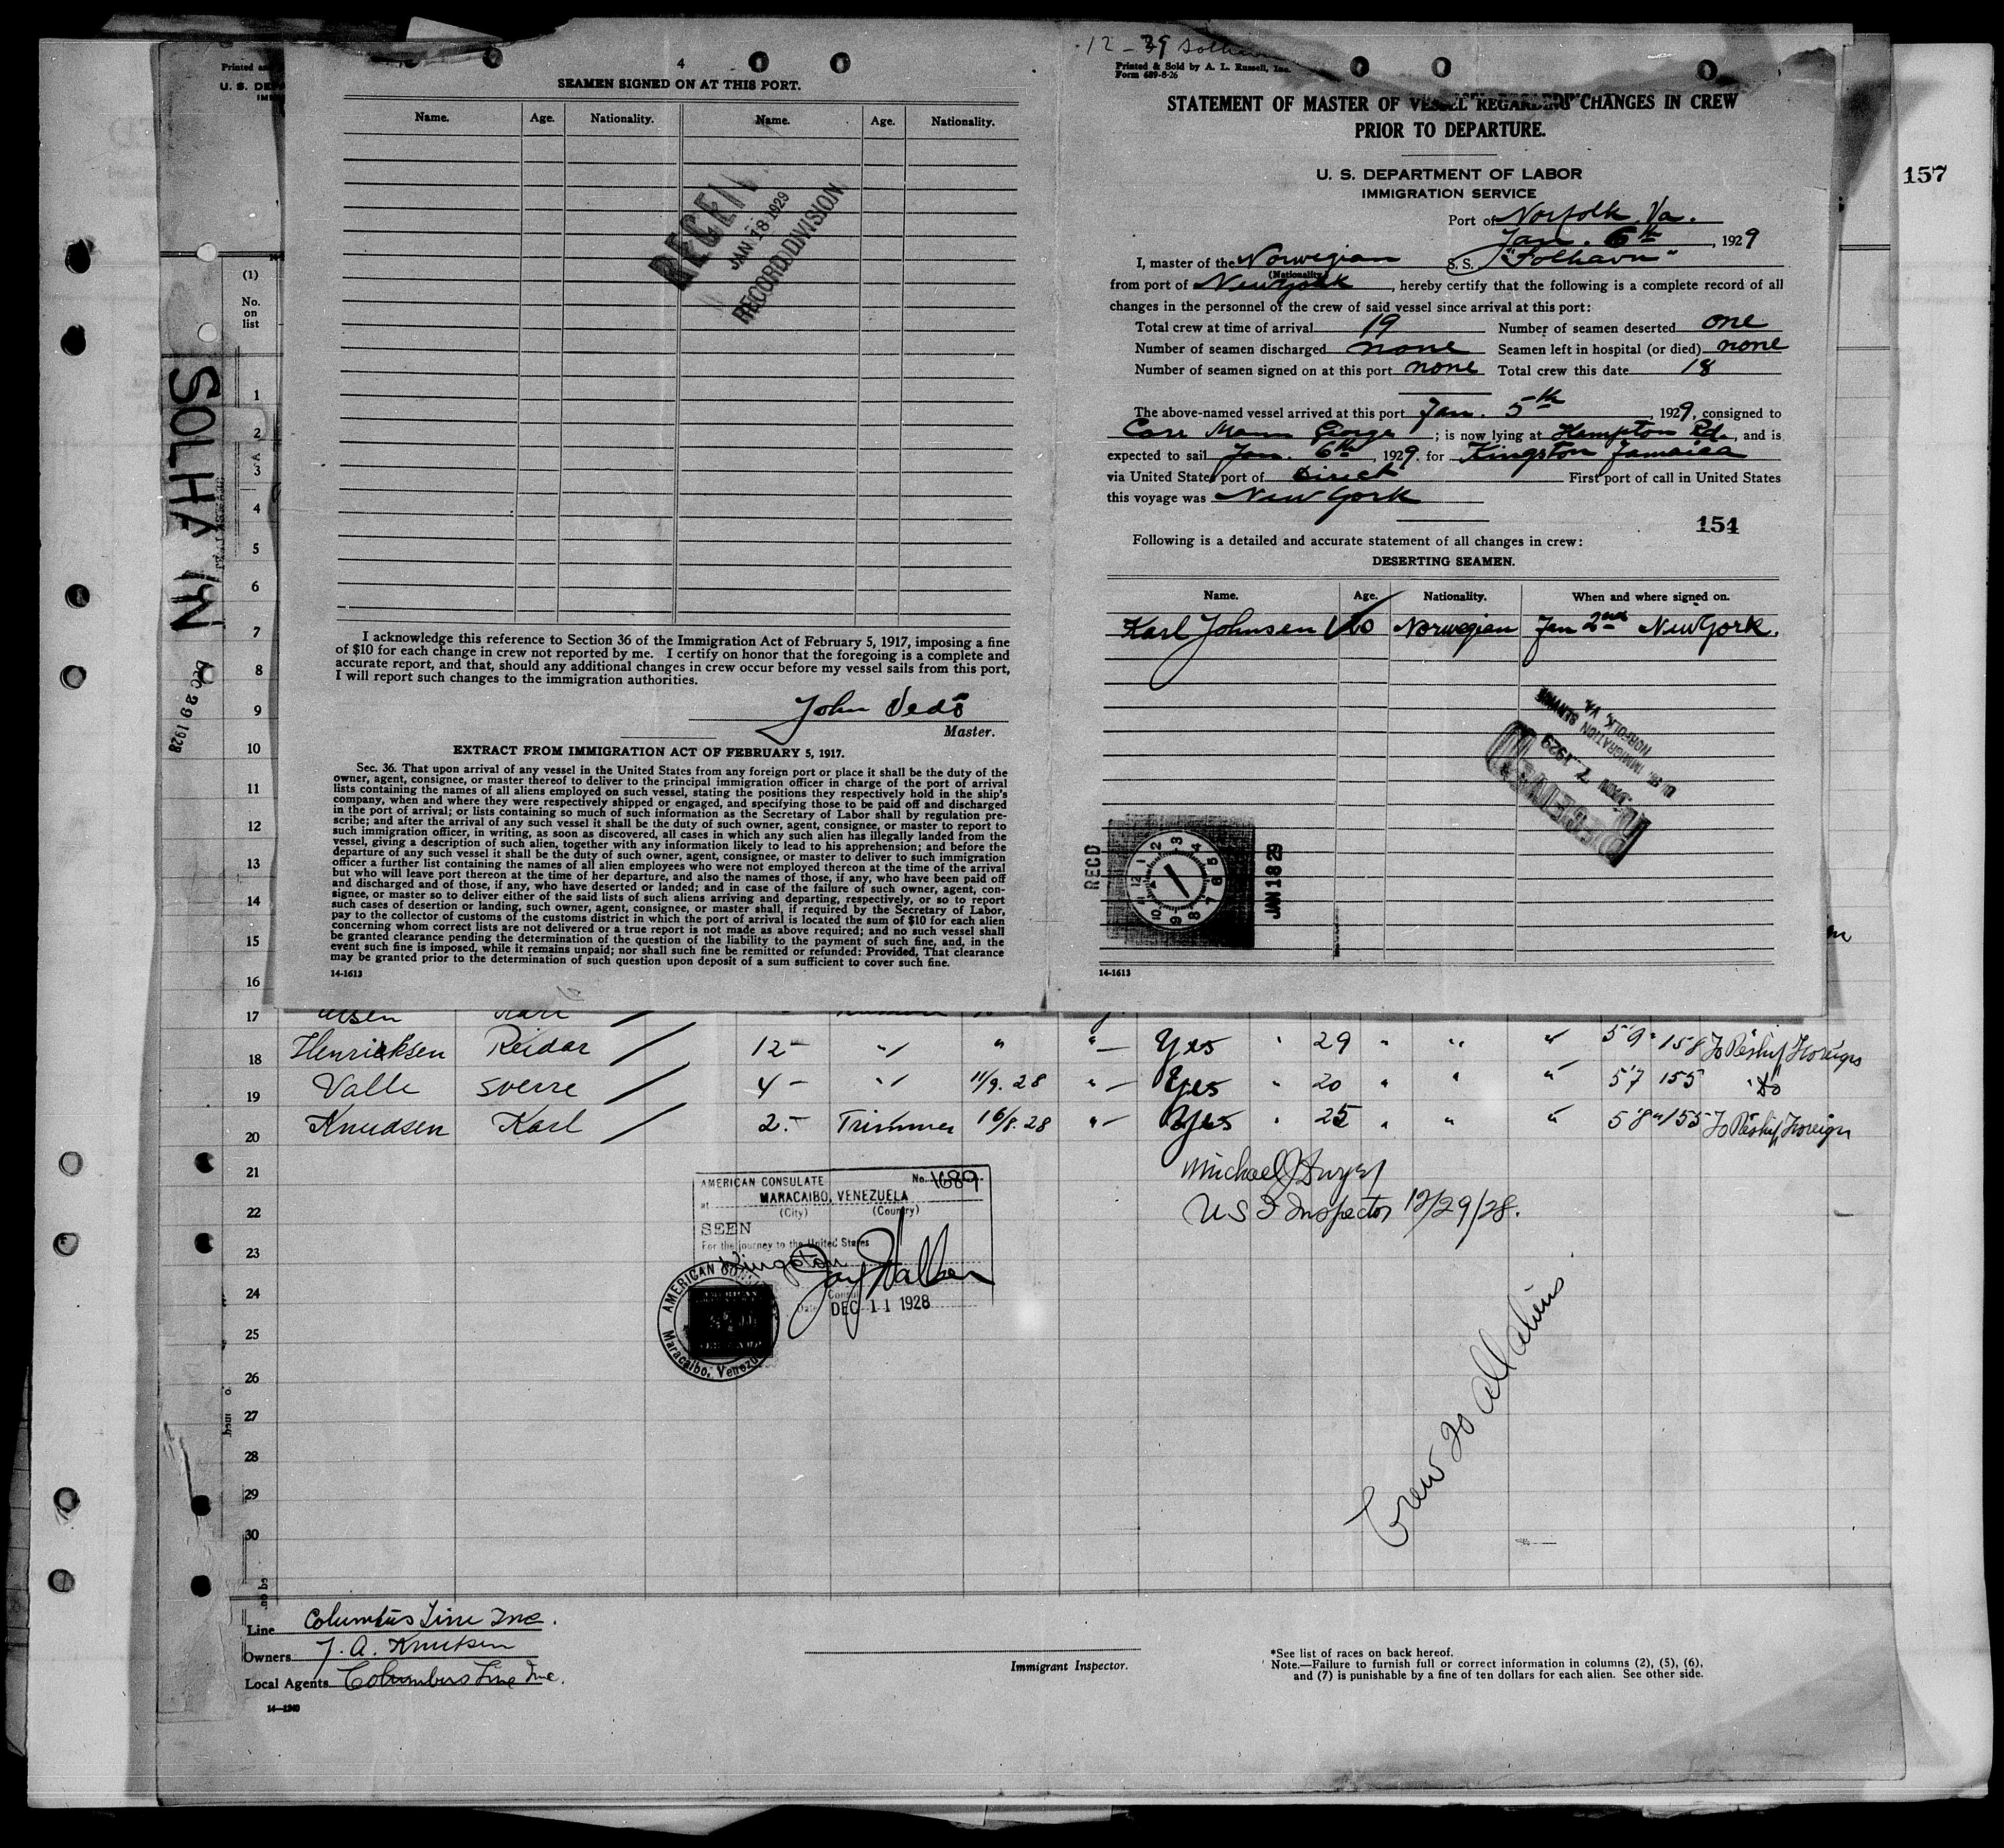 4
SEAMEN SIGNED ON AT THIS PORT.
Name. Age. Nationality. Name. Age. Nationality.
JAN 18 1929
RECORD DIVISION
I acknowledge this reference to Section 36 of the Immigration Act of February 5, 1917, imposing a fine
of $10 for each change in crew not reported by me. I certify on honor that the foregoing is a complete and
accurate report, and that, should any additional changes in crew occur before my vessel sails from this port,
I will report such changes to the immigration authorities.
John
Master.
EXTRACT FROM IMMIGRATION ACT OF FEBRUARY 5, 1917.
Sec. 36. That upon arrival of any vessel in the United States from any foreign port or place it shall be the duty of the
owner, agent, consignee, or master thereof to deliver to the principal immigration officer in charge of the port of arrival
lists containing the names of all aliens employed on such vessel, stating the positions they respectively hold in the ship's
company, when and where they were respectively shipped or engaged, and specifying those to be paid off and discharged
in the port of arrival; or lists containing so much of such information as the Secretary of Labor shall by regulation pre-
scribe; and after the arrival of any such vessel it shall be the duty of such owner, agent, consignee, or master to report to
such immigration officer, in writing, as soon as discovered, all cases in which any such alien has illegally landed from the
vessel, giving a description of such alien, together with any information likely to lead to his apprehension; and before the
departure of any such vessel it shall be the duty of such owner, agent, consignee, or master to deliver to such immigration
officer a further list containing the names of all alien employees who were not employed thereon at the time of the arrival
but who will leave port thereon at the time of her departure, and also the names of those, if any, who have been paid off
and discharged and of those, if any, who have deserted or landed; and in case of the failure of such owner, agent, con-
signee, or master so to deliver either of the said lists of such aliens arriving and departing, respectively, or so to report
such cases of desertion or landing, such owner, agent, consignee, or master shall, if required by the Secretary of Labor,
pay to the collector of customs of the customs district in which the port of arrival is located the sum of $10 for each alien
concerning whom correct lists are not delivered or a true report is not made as above required; and no such vessel shall
be granted clearance pending the determination of the question of the liability to the payment of such fine, and, in the
event such fine is imposed, while it remains unpaid; nor shall such fine be remitted or refunded: Provided, That clearance
may be granted prior to the determination of such question upon deposit of a sum sufficient to cover such fine.
14-1613
12-29
Printed & Sold by A. L. Russell, Inc.
Form 689-8-26
STATEMENT OF MASTER OF VESSEL REGARDING CHANGES IN CREW
PRIOR TO DEPARTURE.
U. S. DEPARTMENT OF LABOR
IMMIGRATION SERVICE
Port of Norfolk, Va.
Jan. 6th, 1929
I, master of the Norwegian S.S. "Solhavn"
(Nationality)
from port of New York, hereby certify that the following is a complete record of all
changes in the personnel of the crew of said vessel since arrival at this port:
Total crew at time of arrival 19 Number of seamen deserted one
Number of seamen discharged none Seamen left in hospital (or died) none
Number of seamen signed on at this port none Total crew this date 18
The above-named vessel arrived at this port Jan. 5th, 1929, consigned to
Carr Mann George; is now lying at Hampton Rd., and is
expected to sail Jan. 6th, 1929, for Kingston Jamaica
via United States port of Direct First port of call in United States
this voyage was New York
154
Following is a detailed and accurate statement of all changes in crew:
DESERTING SEAMEN.
Name. Age. Nationality. When and where signed on.
Karl Johnsen 20 Norwegian Jan 2nd New York.
U.S. IMMIGRATION SERVICE
NORFOLK, VA.
JAN 7 1929
RECD
JAN 18 29
14-1613
157
SOLHAVN
DEC 29 1928
(1)
No.
on
list
1
2
3
4
5
6
7
8
9
10
11
12
13
14
15
16
17
18 Henricksen Reidar / 12 - " " " - Yes " 29 " " " 5'9" 158 To Reship Foreign
19 Valle Sverre / 4 - " 11/9.28 " - Yes " 20 " " " 5'7 155 " do
20 Knudsen Karl / 2. - Trimmer 16/8.28 " - Yes " 25 " " " 5'8" 155 To Reship Foreign
21
22
23
24
25
26
27
28
29
30
Michael J Dwyer
US I Inspector 12/29/28.
AMERICAN CONSULATE No. 1689
at MARACAIBO, VENEZUELA
(City) (Country)
SEEN
For the journey to the United States
Kingston
Consul
Date DEC 11 1928
AMERICAN
Maracaibo, Venezu
Crew 20 all aliens
Line Columbus Line Inc.
Owners J. A. Knutsen
Local Agents Columbus Line Inc.
14-1240
Immigrant Inspector.
*See list of races on back hereof.
Note.—Failure to furnish full or correct information in columns (2), (5), (6),
and (7) is punishable by a fine of ten dollars for each alien. See other side.